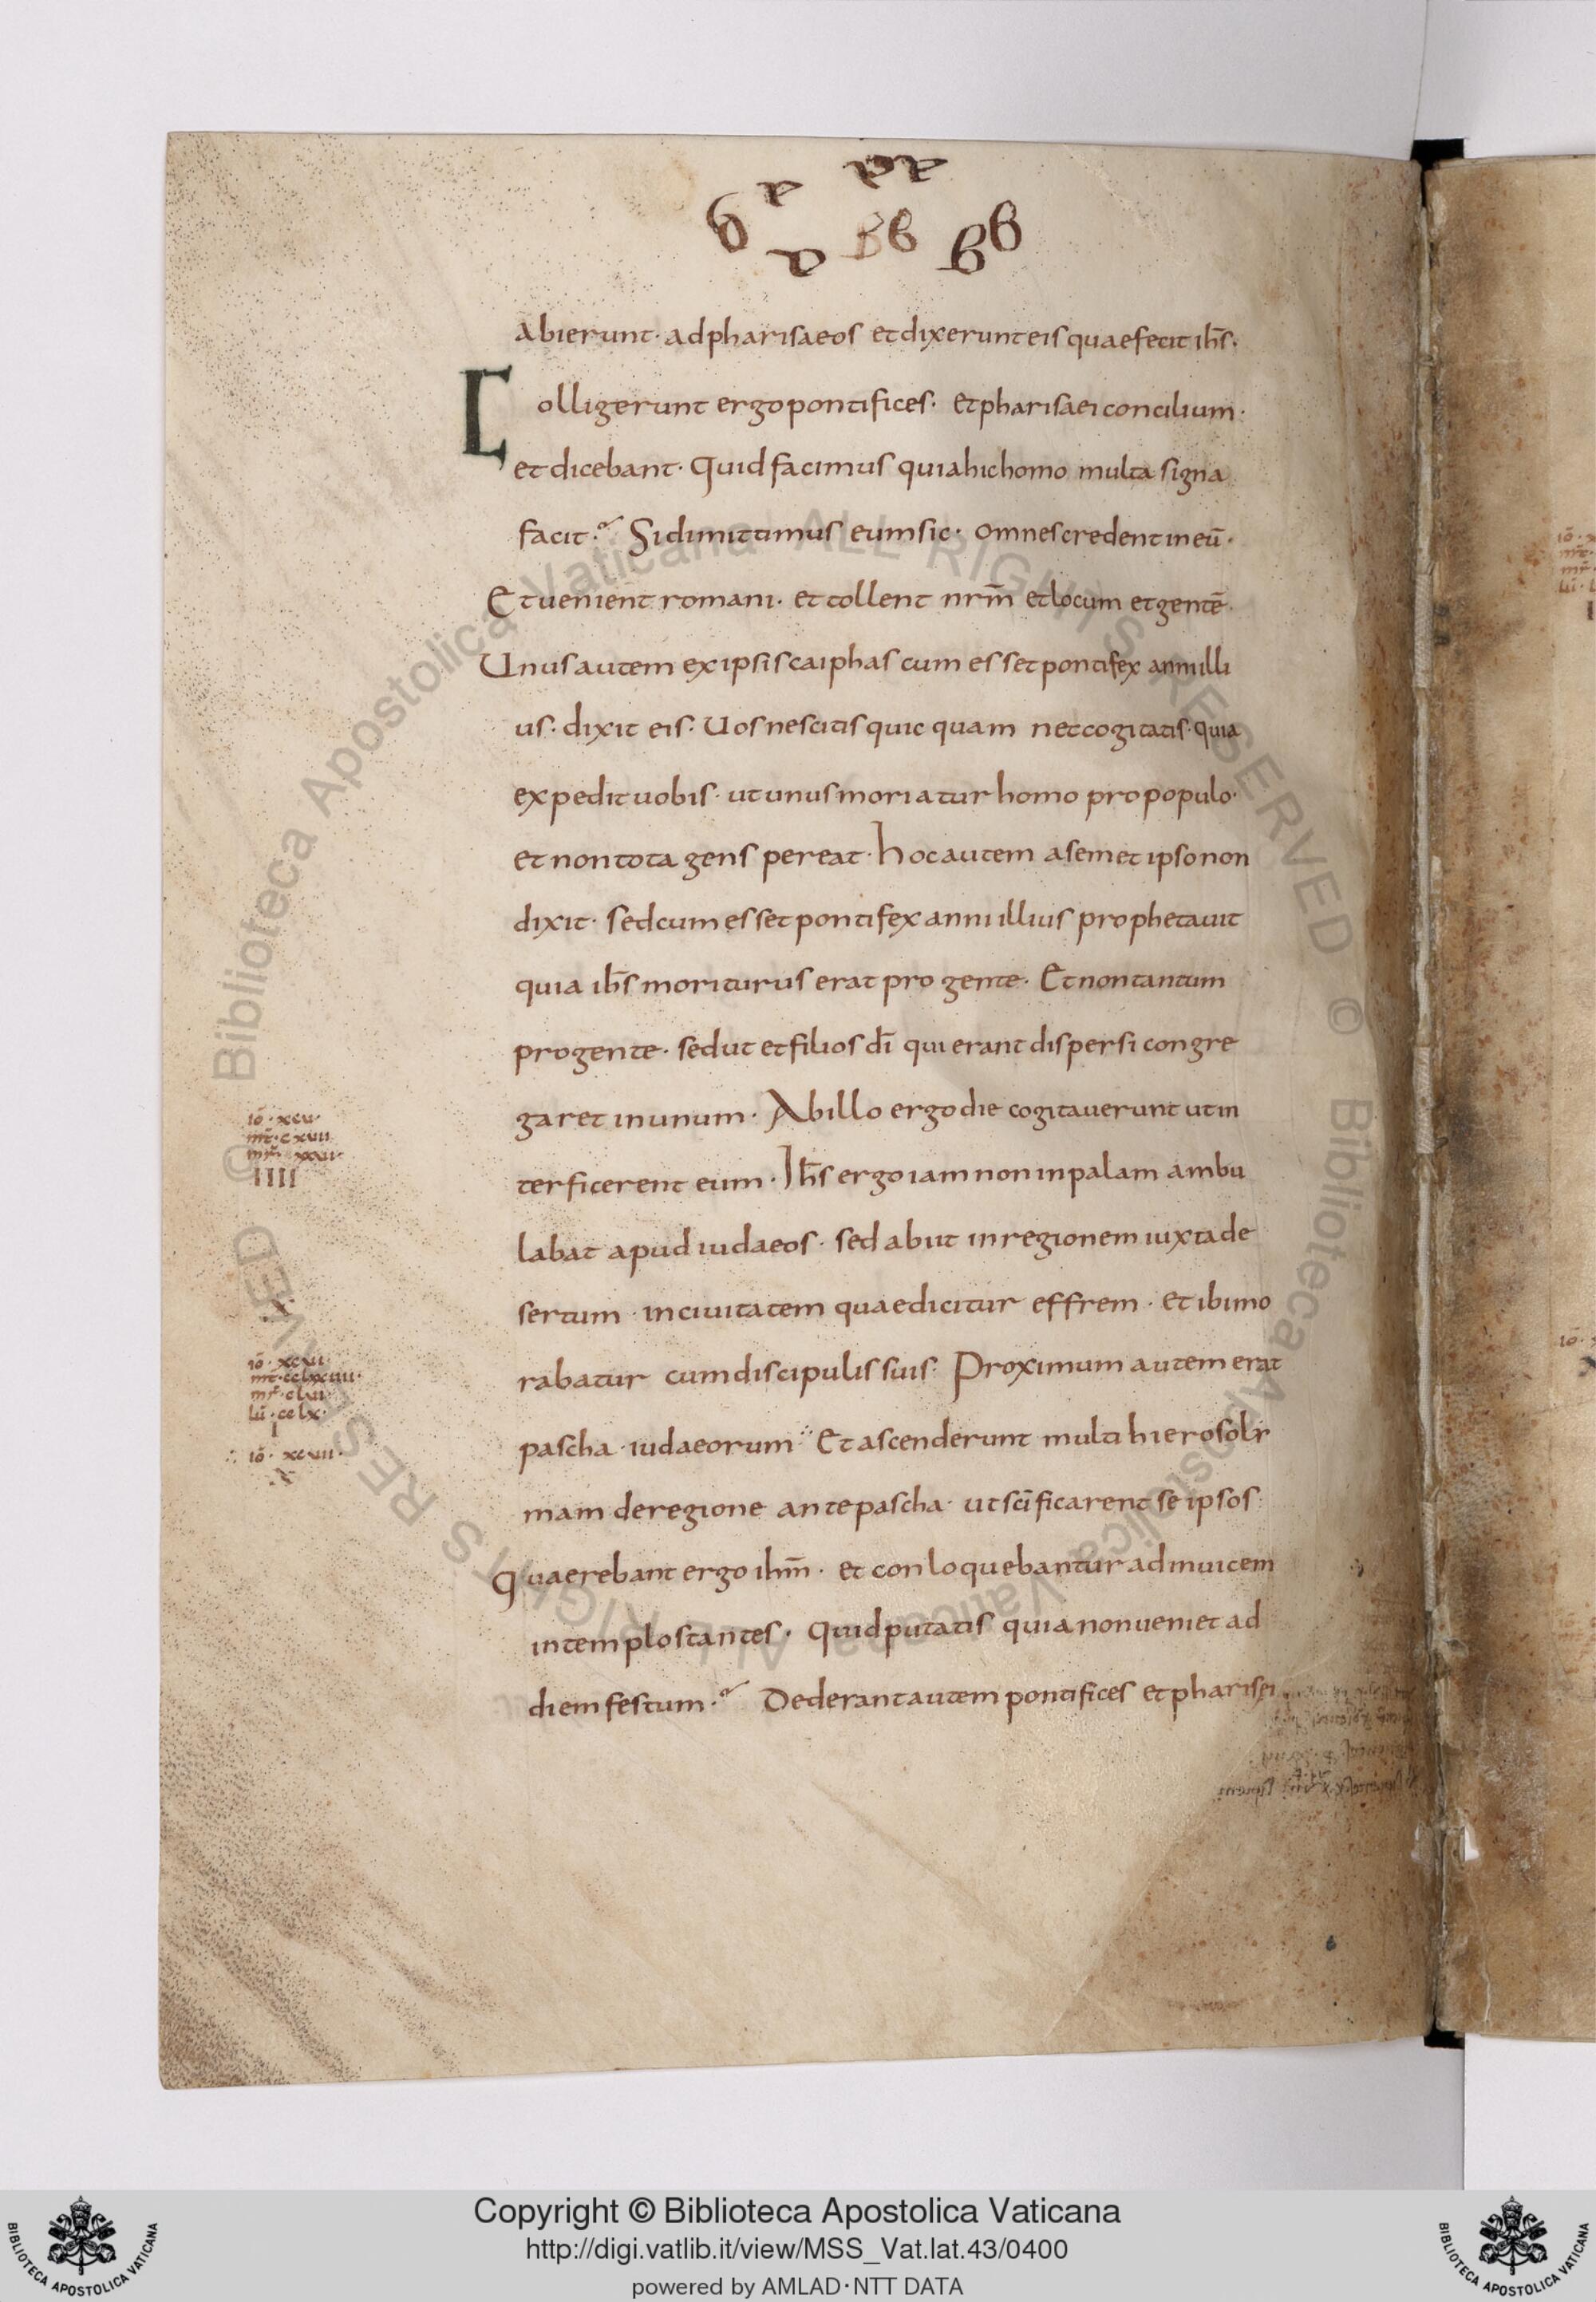 abierunt· ad pharisaeos et dixerunt eis quae fecit ih̄s·
Colligerunt ergo pontifices· et pharisaei concilium·
et dicebant· Quid facimus quia hic homo multa signa
facit? Si dimittimus eum sic· omnes credent in eū·
Et uenient romani· et tollent nr̄m et locum et gentē·
Unus autem ex ipsis caiphas cum esset pontifex anni illi
us· dixit eis· Uos nescitis quicquam nec cogitatis· quia
expedit uobis· ut unus moriatur homo pro populo·
et non tota gens pereat· hoc autem a semet ipso non
dixit· sed cum esset pontifex anni illius prophetauit
quia ih̄s moriturus erat pro gente· Et non tantum
pro gente· sed ut et filios dī qui erant dispersi congre
garet in unum· Ab illo ergo die cogitauerunt ut in
terficerent eum· Ih̄s ergo iam non in palam ambu
labat apud iudaeos· sed abiit in regionem iuxta de
sertum· in ciuitatem quae dicitur effrem· et ibi mo
rabatur cum discipulis suis· Proximum autem erat
pascha· iudaeorum· Et ascenderunt multi hierosoly
mam de regione ante pascha· ut sc̄ificarent se ipsos·
Quaerebant ergo ih̄m· et conloquebantur ad inuicem
in templo stantes· Quid putatis quia non ueniet ad
diem festum? Dederant autem pontifices et pharisei
iō· xcu·
IIII
iō· xcui·
mt̄· cclxxiiii·
mr̄· clui·
lū· cclx·
I
iō· xcuii·
X
Copyright © Biblioteca Apostolica Vaticana
http://digi.vatlib.it/view/MSS_Vat.lat.43/0400
powered by AMLAD·NTT DATA
BIBLIOTECA APOSTOLICA VATICANA
BIBLIOTECA APOSTOLICA VATICANA
© Biblioteca Apostolica Vaticana ALL RIGHTS RESERVED
© Biblioteca Apostolica Vaticana ALL RIGHTS RESERVED